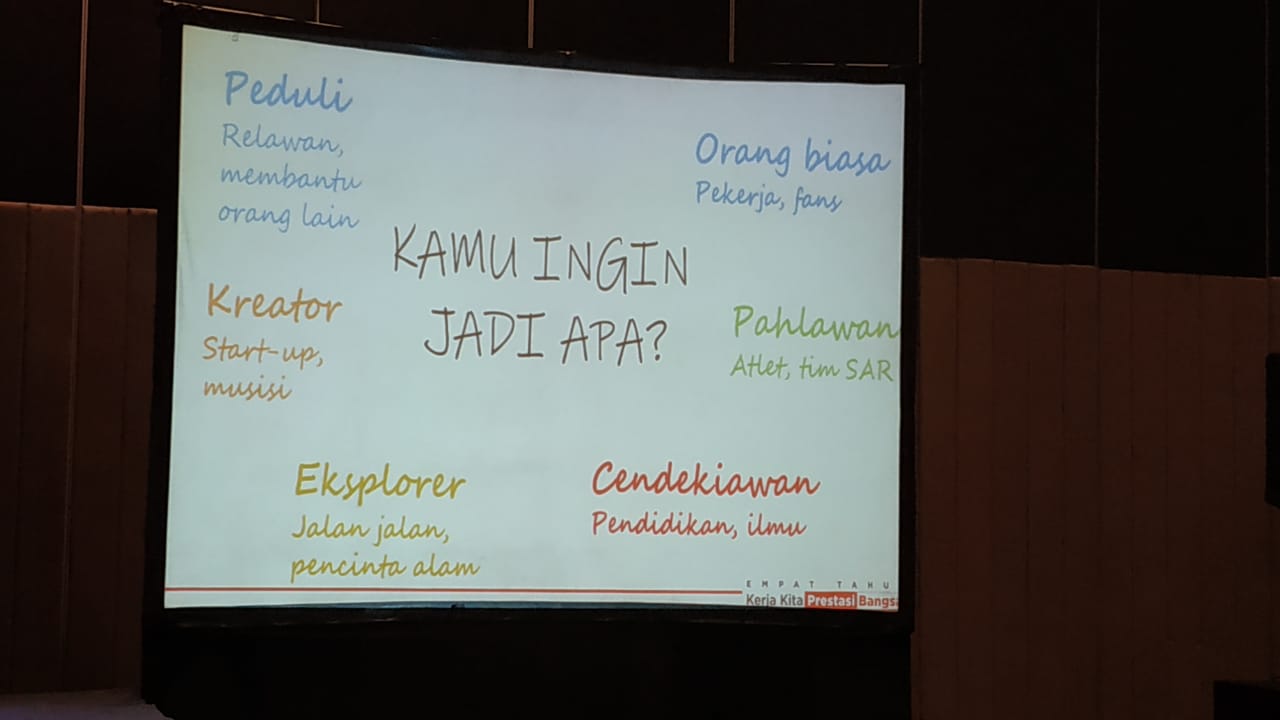 Peduli
Relawan,
membantu
orang lain
Orang biasa
Pekerja, fans
KAMU INGIN
JADI APA?
Kreator
Start-up,
musisi
Pahlawan
Atlet, tim SAR
Eksplorer
Jalan jalan,
pencinta alam
Cendekiawan
Pendidikan, ilmu
EMPAT TAHU
Kerja Kita Prestasi Bangsa